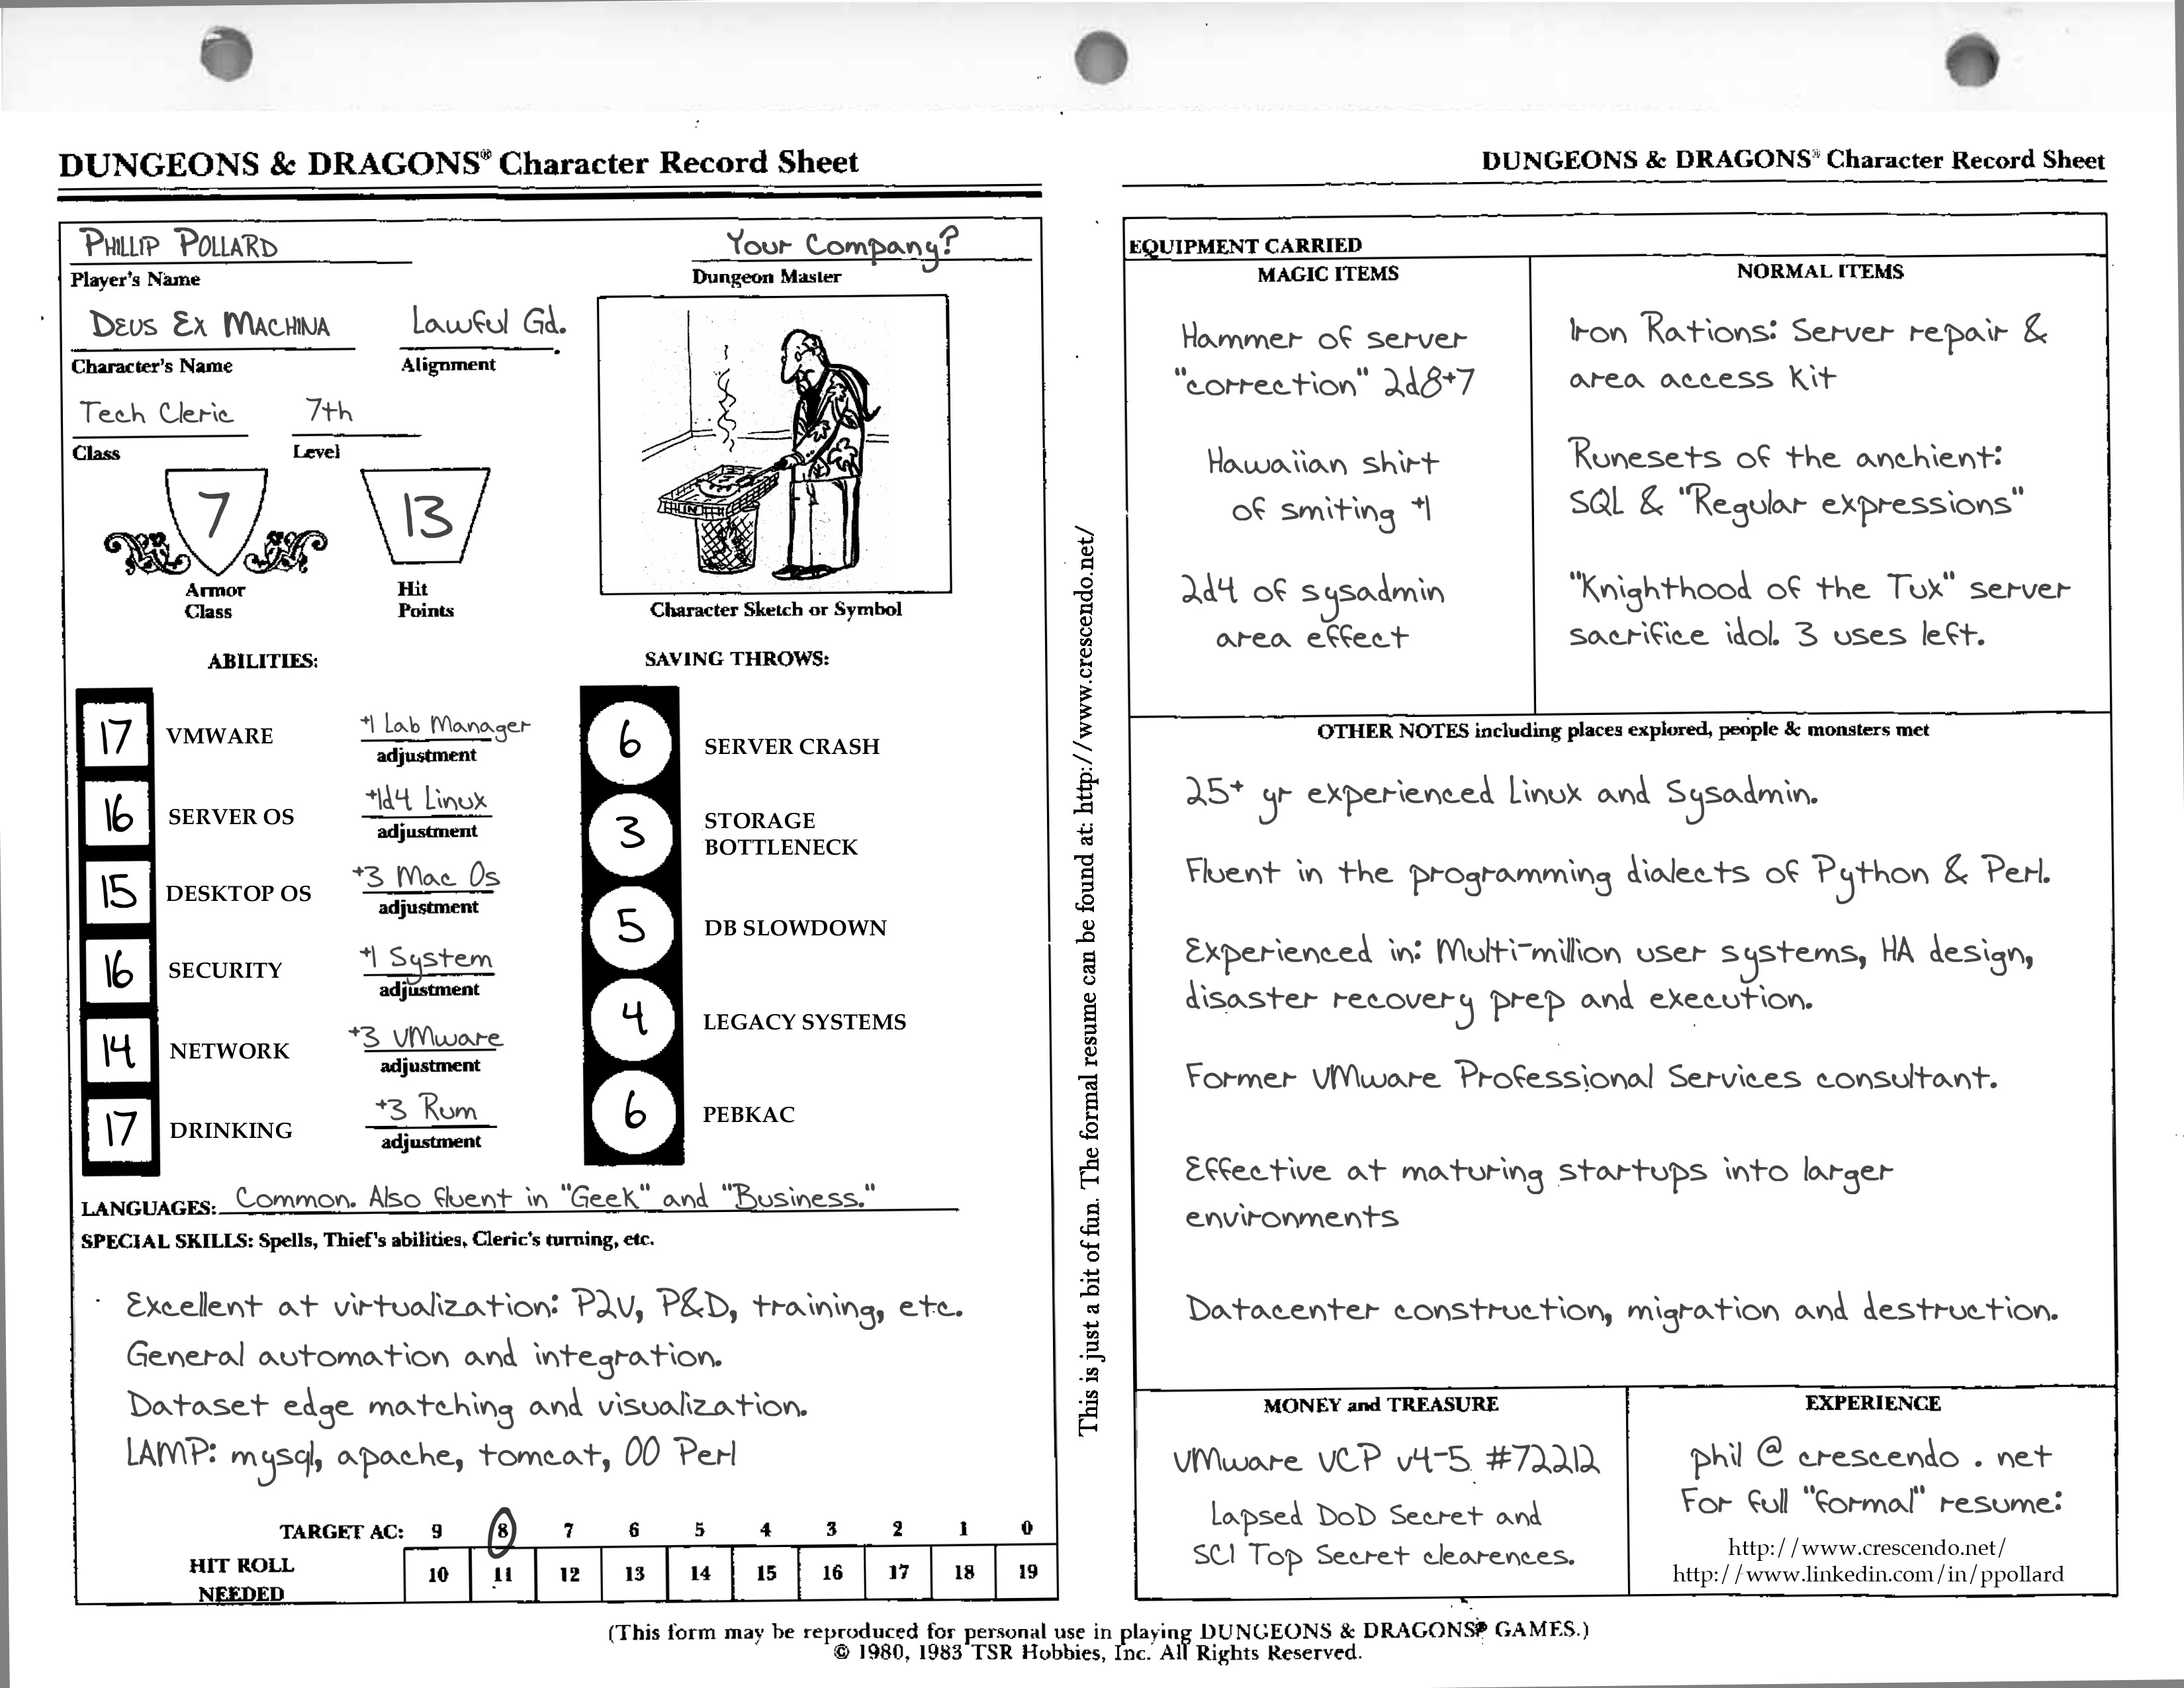 DUNGEONS & DRAGONS® Character Record Sheet
PHILLIP POLLARD
Player's Name
Your Company?
Dungeon Master
DEUS EX MACHINA
Character's Name
Lawful Gd.
Alignment
Tech Cleric
Class
7th
Level
7
Armor
Class
13
Hit
Points
Character Sketch or Symbol
ABILITIES:
17 VMWARE +1 Lab Manager
adjustment
16 SERVER OS +1d4 Linux
adjustment
15 DESKTOP OS +3 Mac Os
adjustment
16 SECURITY +1 System
adjustment
14 NETWORK +3 VMware
adjustment
17 DRINKING +3 Rum
adjustment
SAVING THROWS:
6 SERVER CRASH
3 STORAGE
BOTTLENECK
5 DB SLOWDOWN
4 LEGACY SYSTEMS
6 PEBKAC
LANGUAGES: Common. Also fluent in "Geek" and "Business."
SPECIAL SKILLS: Spells, Thief's abilities, Cleric's turning, etc.
Excellent at virtualization: P2V, P&D, training, etc.
General automation and integration.
Dataset edge matching and visualization.
LAMP: mysql, apache, tomcat, OO Perl
TARGET AC: 9 8 7 6 5 4 3 2 1 0
HIT ROLL
NEEDED
10 11 12 13 14 15 16 17 18 19
This is just a bit of fun. The formal resume can be found at: http://www.crescendo.net/
DUNGEONS & DRAGONS® Character Record Sheet
EQUIPMENT CARRIED
MAGIC ITEMS
Hammer of server
"correction" 2d8+7
Hawaiian shirt
of smiting +1
2d4 of sysadmin
area effect
NORMAL ITEMS
Iron Rations: Server repair &
area access kit
Runesets of the anchient:
SQL & "Regular expressions"
"Knighthood of the Tux" server
sacrifice idol. 3 uses left.
OTHER NOTES including places explored, people & monsters met
25+ yr experienced Linux and Sysadmin.
Fluent in the programming dialects of Python & Perl.
Experienced in: Multi-million user systems, HA design,
disaster recovery prep and execution.
Former VMware Professional Services consultant.
Effective at maturing startups into larger
environments
Datacenter construction, migration and destruction.
MONEY and TREASURE
VMware VCP v4-5 #72212
Lapsed DoD Secret and
SCI Top Secret clearences.
EXPERIENCE
phil @ crescendo . net
For full "formal" resume:
http://www.crescendo.net/
http://www.linkedin.com/in/ppollard
(This form may be reproduced for personal use in playing DUNGEONS & DRAGONS® GAMES.)
© 1980, 1983 TSR Hobbies, Inc. All Rights Reserved.